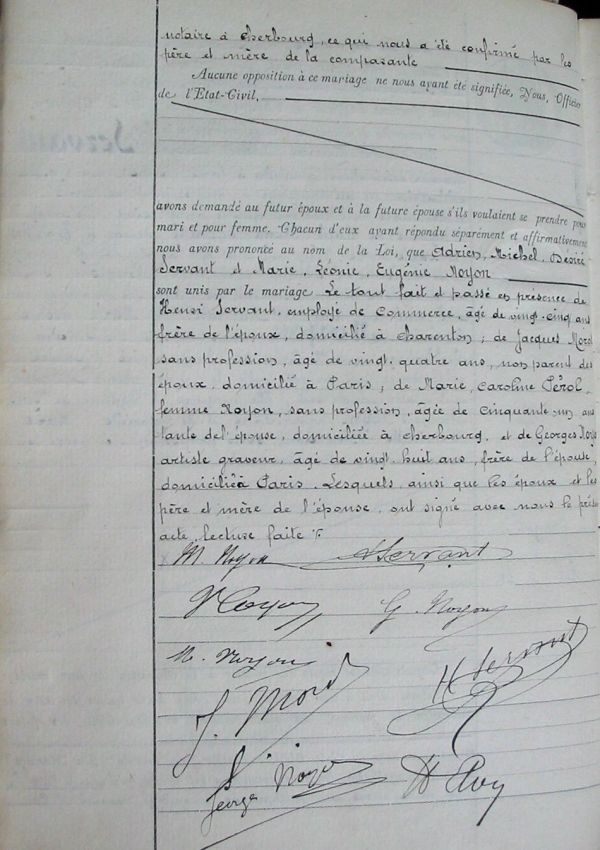 notaire à Cherbourg, ce qui nous a été confirmé par les
père et mère de la comparante
Aucune opposition à ce mariage ne nous ayant été signifiée, Nous, Officier
de l'Etat-Civil,
avons demandé au futur époux et à la future épouse s'ils voulaient se prendre pour
mari et pour femme. Chacun d'eux ayant répondu séparément et affirmativement
nous avons prononcé au nom de la Loi, que Adrien, Michel, Désiré
Servant et Marie, Léonie, Eugénie Noyon
sont unis par le mariage Le tout fait et passé en présence de
Henri Servant, employé de Commerce, âgé de vingt-cinq ans
frère de l'époux, domicilié à Charenton ; de Jacques
sans profession, âgé de vingt-quatre ans, non parent des
époux, domicilié à Paris ; de Marie, Caroline
femme Noyon, sans profession, âgée de Cinquante un ans
tante de l'épouse, domiciliée à Cherbourg, et de Georges Noyo
artiste graveur, âgé de vingt-huit ans, frère de l'épouse,
domicilié à Paris. Lesquels, ainsi que les époux et les
père et mère de l'épouse, ont signé avec nous le prése
acte, lecture faite
M. Noyon Servant
Noyon G. Noyon
Noyon
J. H Servant
George Noyon